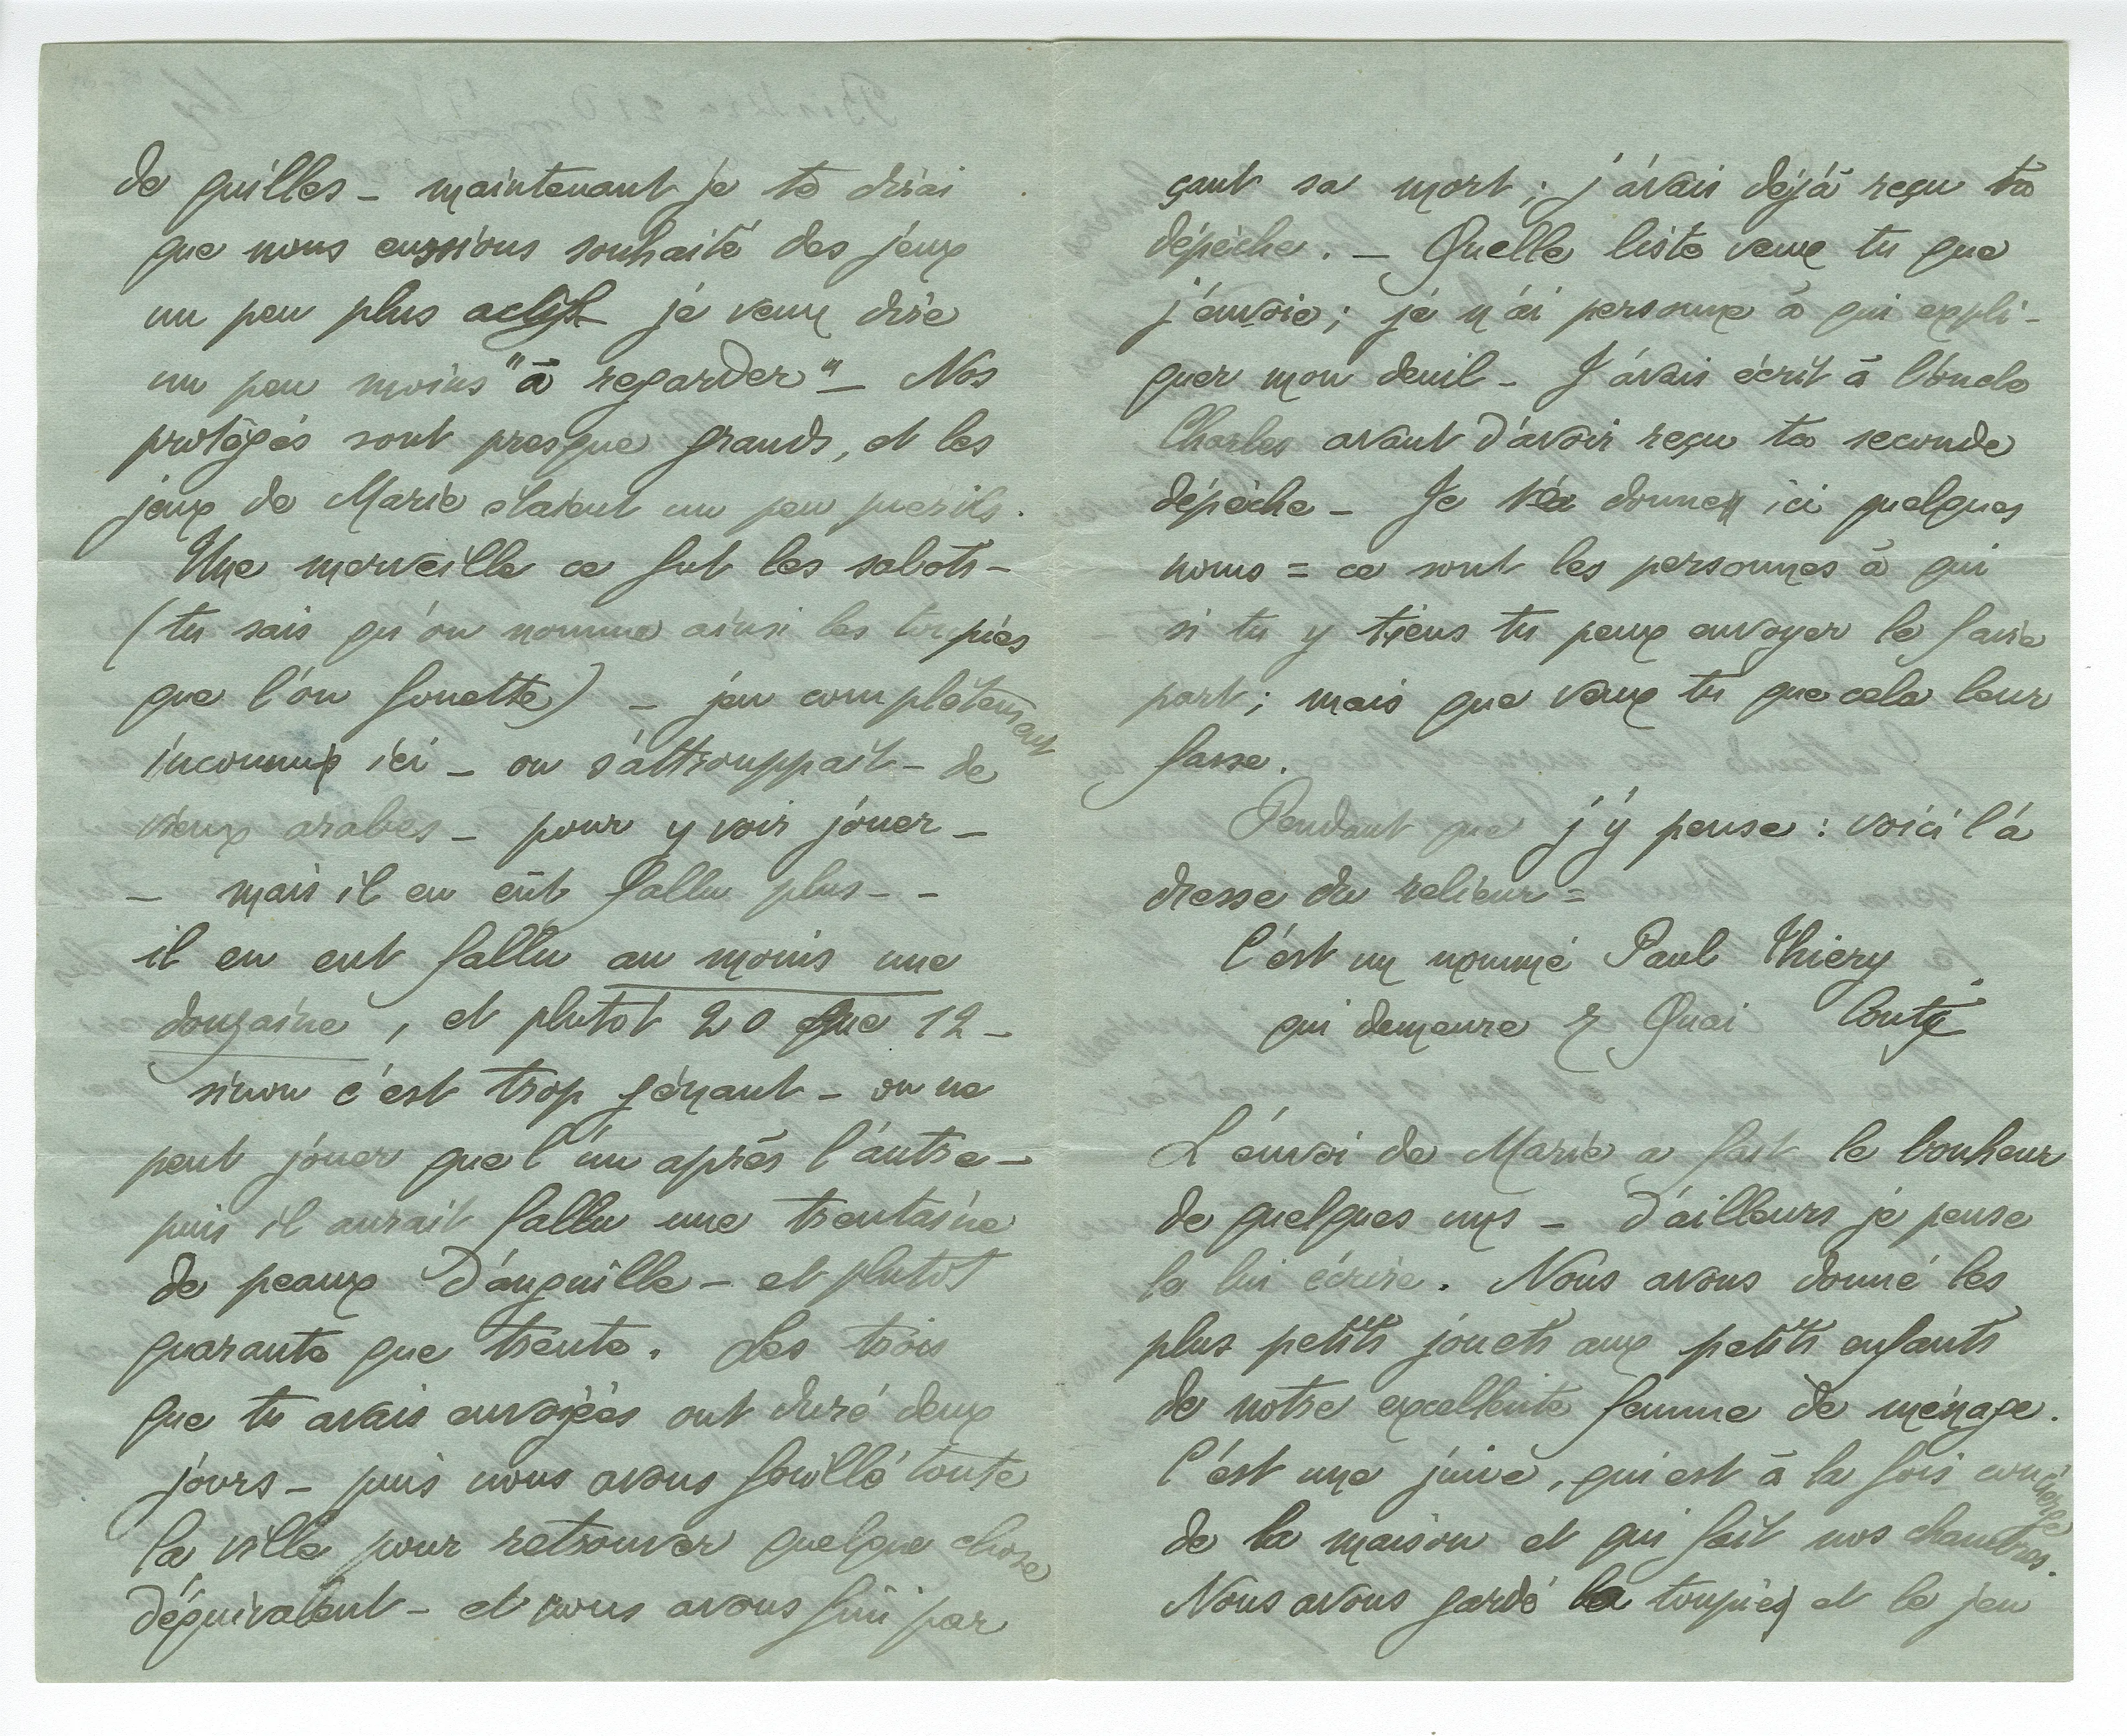 de quilles – maintenant je te dirai
que nous eussions souhaité des jeux
un peu plus actifs je veux dire
un peu moins "à regarder" – Nos
protégés sont presque grands, et les
jeux de Marie étaient un peu puerils.
Une merveille ce fut les sabots –
(tu sais qu'on nomme ainsi les toupies
que l'on fouette) – jeu complètement
inconnu ici – on s'attrouppait – de
vieux arabes – pour y voir jouer –
– mais il en eût fallu plus – –
il en eut fallu au moins une
douzaine, et plutot 20 que 12 –
sinon c'est trop gênant – on ne
peut jouer que l'un après l'autre –
puis il aurait fallu une trentaine
de peaux d'anguille – et plutôt
quarante que trente. Les trois
que tu avais envoyées ont duré deux
jours – puis nous avons fouillé toute
la ville pour retrouver quelque chose
d'équivalent – et nous avons fini par
çant sa mort; j'avais déjà reçu ta
dépèche. – Quelle liste veux tu que
j'envoie; je n'ai personne à qui expli-
quer mon deuil – J'avais écrit à l'oncle
Charles avant d'avoir reçu ta seconde
dépèche – Je donne ici quelques
noms = ce sont les personnes à qui
si tu y tiens tu peux envoyer le faire
part; mais que veux tu que cela leur
fasse.
Pendant que j'y pense : voici l'a
dresse du relieur =
C'est un nommé Paul Thiery
qui demeure Quai Conti
L'envoi de Marie a fait le bonheur
de quelques uns – d'ailleurs je pense
le lui écrire. Nous avons donné les
plus petits jouets aux petits enfants
de notre excellente femme de ménage.
C'est une juive, qui est à la fois concierge
de la maison et qui fait nos chambres.
Nous avons gardé la toupie, et le jeu